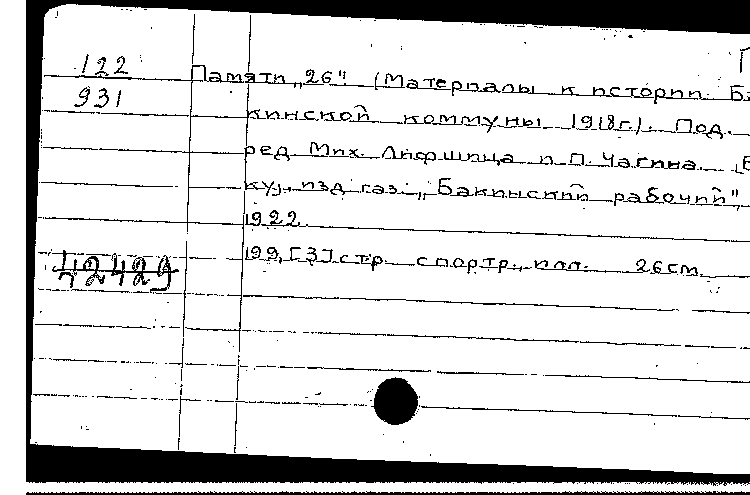 122
931
Памяти „26". (Материалы к истории Ба
кинской коммуны 1918г.). Под.
ред. Мих. Лифшица и П. Чагина.
ку], изд. газ. „Бакинский рабочий",
1922.
199, [3] стр. с портр., илл. 26см.
42429